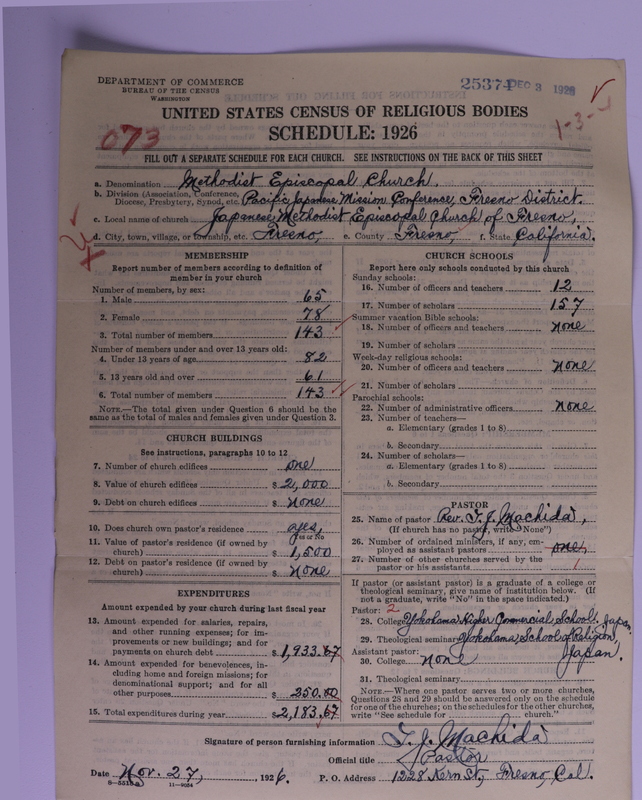 DEPARTMENT OF COMMERCE
BUREAU OF THE CENSUS
WASHINGTON
25374 DEC 3 1926
UNITED STATES CENSUS OF RELIGIOUS BODIES
SCHEDULE: 1926
073
1-3-
FILL OUT A SEPARATE SCHEDULE FOR EACH CHURCH. SEE INSTRUCTIONS ON THE BACK OF THIS SHEET
a. Denomination Methodist Episcopal Church.
b. Division (Association, Conference, Diocese, Presbytery, Synod, etc. Pacific Japanese Mission Conference, Fresno District.
c. Local name of church Japanese Methodist Episcopal Church of Fresno,
d. City, town, village, or township, etc. Fresno, e. County Fresno, f. State California.
MEMBERSHIP
Report number of members according to definition of
member in your church
Number of members, by sex:
1. Male 65
2. Female 78
3. Total number of members 143
Number of members under and over 13 years old:
4. Under 13 years of age 82
5. 13 years old and over 61
6. Total number of members 143
NOTE.—The total given under Question 6 should be the
same as the total of males and females given under Question 3.
CHURCH BUILDINGS
See instructions, paragraphs 10 to 12
7. Number of church edifices one
8. Value of church edifices $ 2,000
9. Debt on church edifices $ None
10. Does church own pastor's residence yes,
Yes or No
11. Value of pastor's residence (if owned by
church) $ 1,500
12. Debt on pastor's residence (if owned by
church) $ None
EXPENDITURES
Amount expended by your church during last fiscal year
13. Amount expended for salaries, repairs,
and other running expenses; for im-
provements or new buildings; and for
payments on church debt $ 1,933.67
14. Amount expended for benevolences, in-
cluding home and foreign missions; for
denominational support; and for all
other purposes $ 250.00
15. Total expenditures during year $ 2,183.67
CHURCH SCHOOLS
Report here only schools conducted by this church
Sunday schools:
16. Number of officers and teachers 12
17. Number of scholars 157
Summer vacation Bible schools:
18. Number of officers and teachers none
19. Number of scholars
Week-day religious schools:
20. Number of officers and teachers none
21. Number of scholars
Parochial schools:
22. Number of administrative officers none
23. Number of teachers—
a. Elementary (grades 1 to 8)
b. Secondary
24. Number of scholars—
a. Elementary (grades 1 to 8)
b. Secondary
PASTOR
25. Name of pastor Rev. T. J. Machida,
(If church has no pastor, write "None")
26. Number of ordained ministers, if any, em-
ployed as assistant pastors one
27. Number of other churches served by the
pastor or his assistant 1
If pastor (or assistant pastor) is a graduate of a college or
theological seminary, give name of institution below. (If
not a graduate, write "No" in the space indicated.)
Pastor: 2
28. College Yokohama Higher Commercial School. Japan.
29. Theological seminary Yokohama School of Religion,
Japan.
Assistant pastor:
30. College none
31. Theological seminary
NOTE.—Where one pastor serves two or more churches,
Questions 28 and 29 should be answered only on the schedule
for one of the churches; on the schedules for the other churches,
write "See schedule for church."
Signature of person furnishing information T. J. Machida
Official title Pastor
Date Nov. 27, 1926. P. O. Address 1228 Kern St., Fresno, Cal.
11—9024